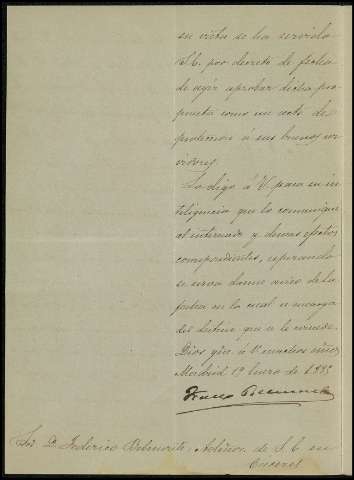 en vista se ha servido
S.E. por decreto de fecha
de ayer aprobar dicha pro-
puesta como un acto de
proteccion á sus buenos ser-
vidores.
Lo digo á V. para su in-
teligencia que lo comunique
al interesado y demas efectos
correspondientes, esperando
se sirva darme aviso de la
fecha en la cual se encarga
del destino que se le concede.
Dios gue. á V. muchos años
Madrid 19 Enero de 1.889
Sor. D. Federico Belmonte Admor. de S.E. en